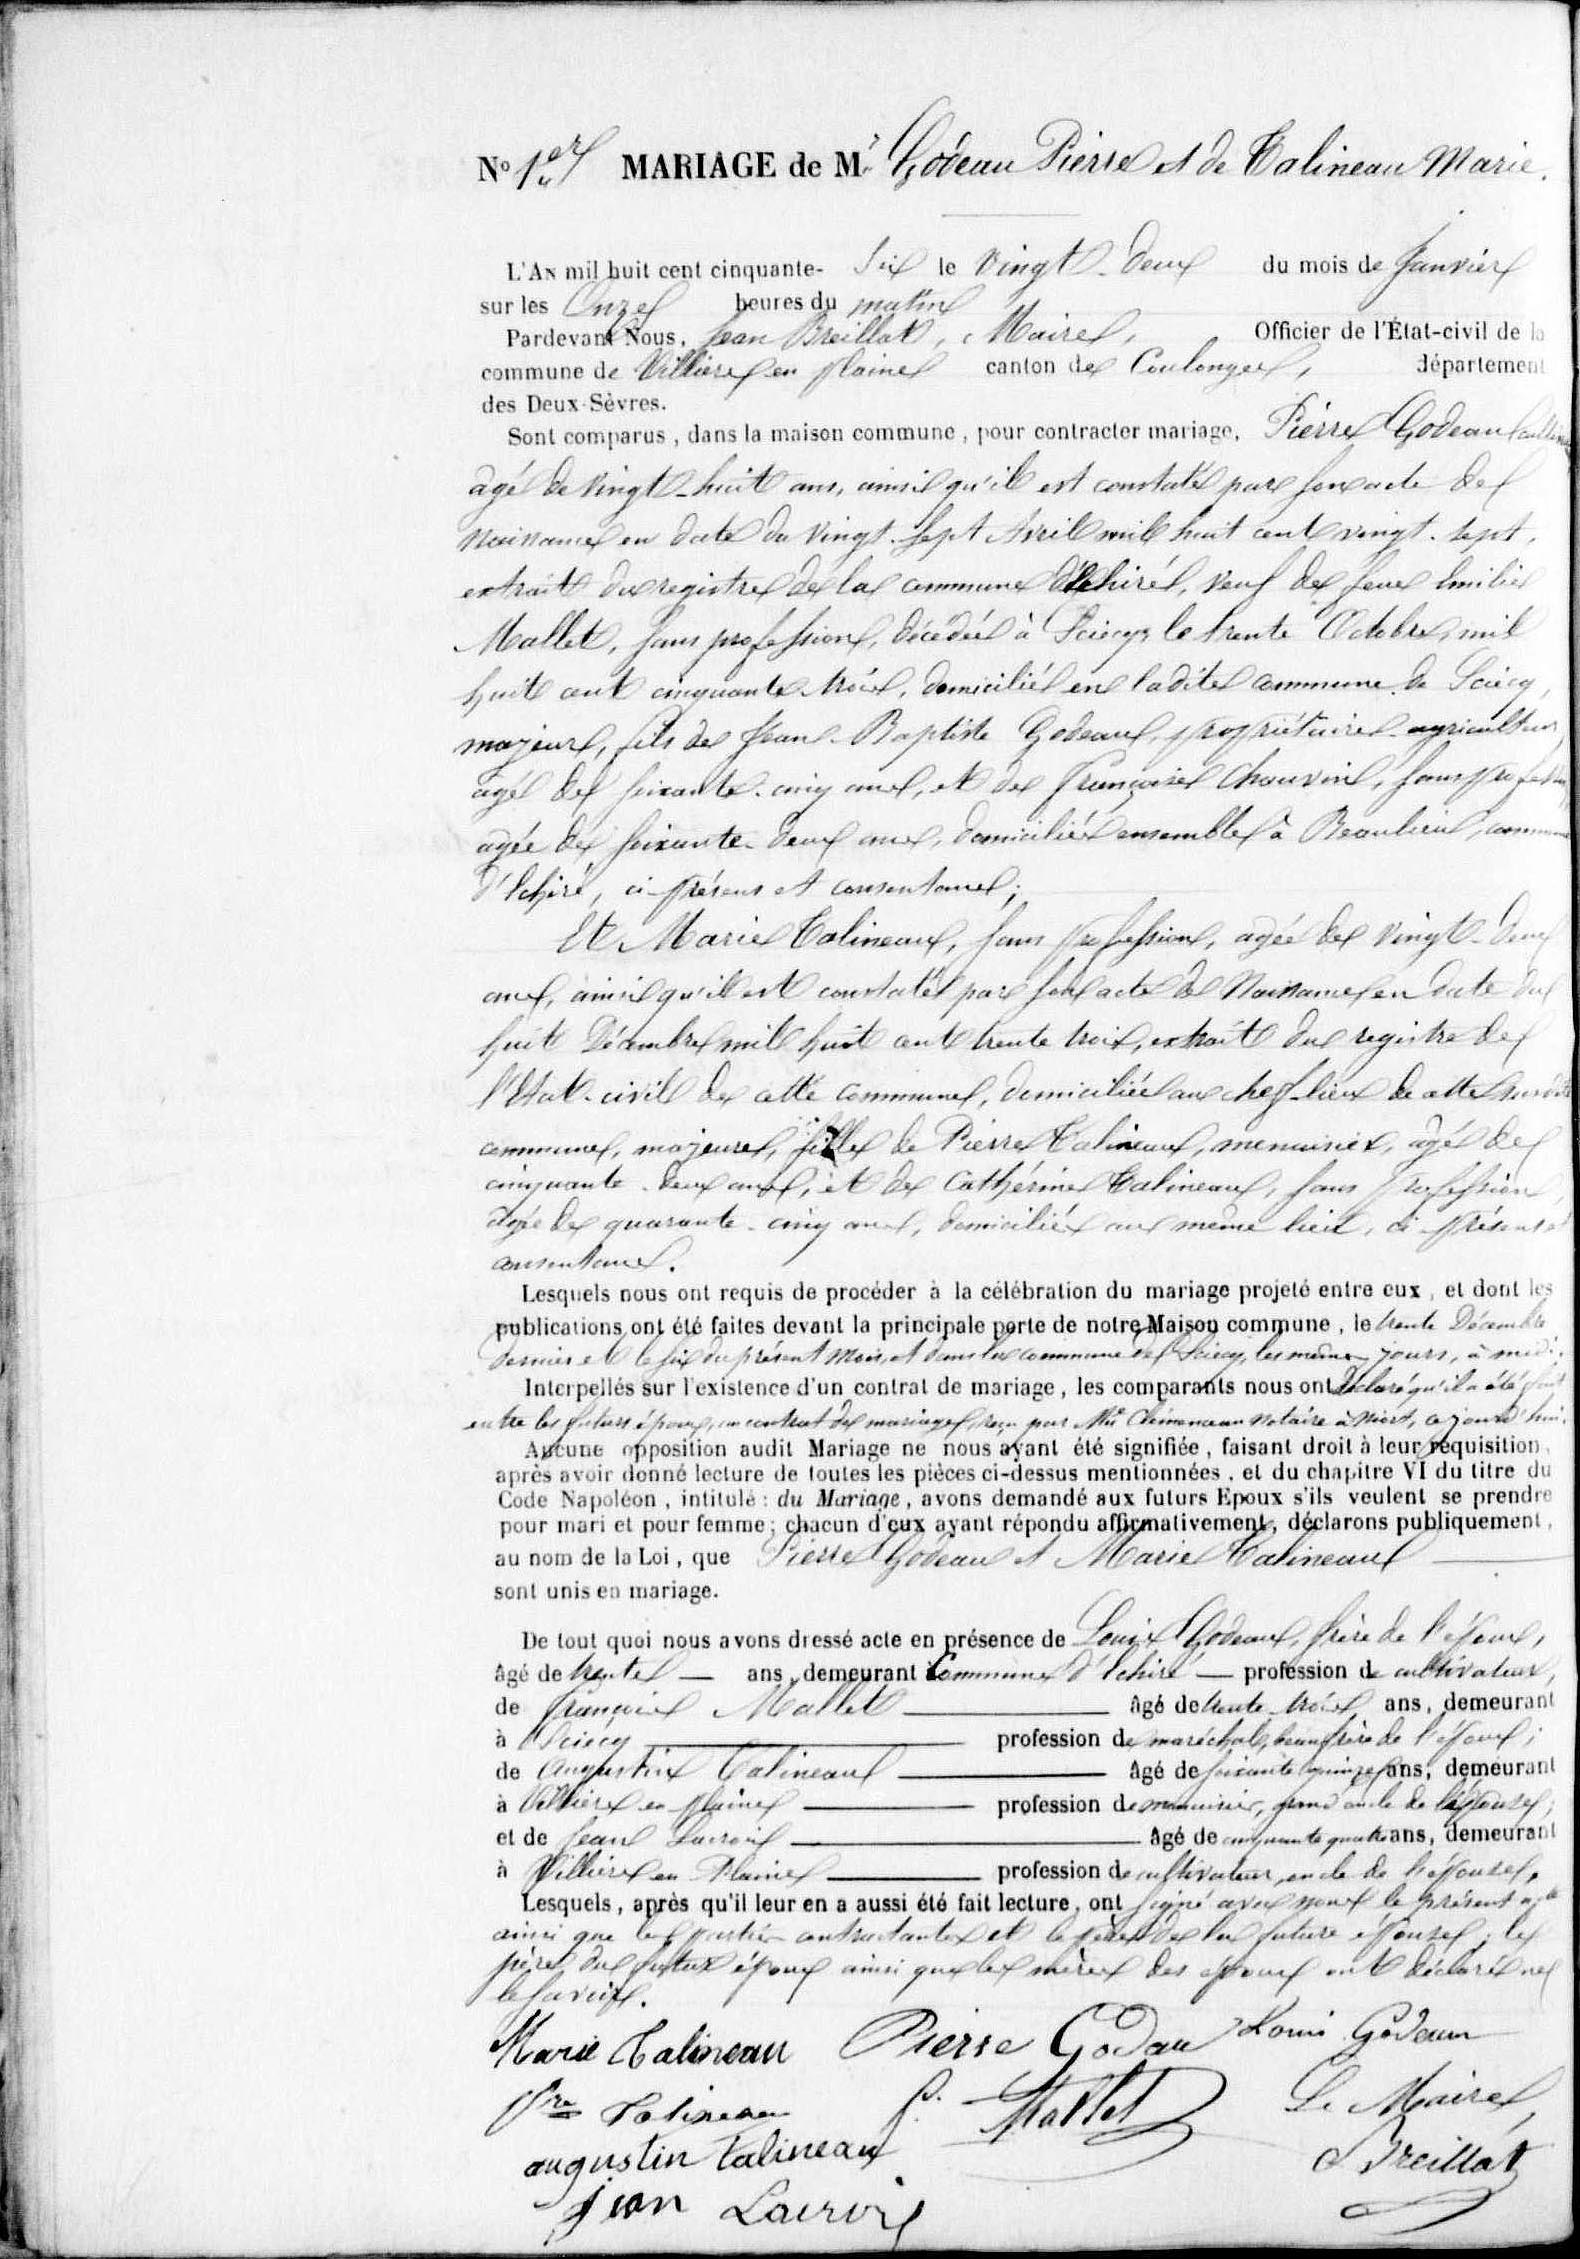 No 1er MARIAGE de Mr Godeau Pierre et de Talineau Marie.
L'AN mil huit cent cinquante- Six le vingt-deux du mois de Janvier
sur les Onze heures du matin
Pardevant Nous, Jean Breillat, Maire, Officier de l'État-civil de la
commune de Villiers en plaine canton de Coulonges, département
des Deux-Sèvres.
Sont comparus, dans la maison commune, pour contracter mariage, Pierre Godeau
agé de vingt-huit ans, ainsi qu'il est constaté par son acte de
naissance en date du vingt-sept Avril mil huit cent vingt-sept,
extrait du registre de la commune d'Echiré, veuf de feue Emilie
Mallet, sans profession, décédée à Sciecq, le trente Octobre, mil
huit cent cinquante-trois, domicilié en ladite commune de Sciecq,
majeur, fils de Jean-Baptiste Godeau, propriétaire-agriculteur,
agé de soixante-cinq ans, et de Françoise Chauvin, sans profession,
agée de soixante-deux ans, domiciliés ensemble à Beaulieu, commune
d'Echiré, ci-présens et consentans;
Et Marie Talineau, sans profession, agée de vingt-deux
ans, ainsi qu'il est constaté par son acte de Naissance en date du
huit Décembre mil huit cent trente trois, extrait du registre de
l'Etat-civil de cette commune, domiciliée au chef-lieu de cette susdite
commune, majeure, fille de Pierre Talineau, menuisier, agé de
cinquante-deux ans, et de Cathérine Talineau, sans profession,
agée de quarante-cinq ans, domiciliés au même lieu, ci-présens et
consentans.
Lesquels nous ont requis de procéder à la célébration du mariage projeté entre eux, et dont les
publications ont été faites devant la principale porte de notre Maison commune, le trente Décembre
dernier et le six du présent mois, et dans la commune de Sciecq, les mêmes jours, à midi.
Interpellés sur l'existence d'un contrat de mariage, les comparants nous ont déclaré qu'il a été fait
entre les futurs époux, un contrat de mariage, reçu par Me Clémenceau Notaire à Niort, ce jourd'hui.
Aucune opposition audit Mariage ne nous ayant été signifiée, faisant droit à leur réquisition,
après avoir donné lecture de toutes les pièces ci-dessus mentionnées, et du chapitre VI du titre du
Code Napoléon, intitulé : du Mariage, avons demandé aux futurs Epoux s'ils veulent se prendre
pour mari et pour femme; chacun d'eux ayant répondu affirmativement, déclarons publiquement,
au nom de la Loi, que Pierre Godeau et Marie Talineau
sont unis en mariage.
De tout quoi nous avons dressé acte en présence de Louis Godeau, frère de l'époux,
âgé de trente ans, demeurant Commune d'Echiré profession de cultivateur,
de François Mallet âgé de trente-trois ans, demeurant
à Sciecq profession de maréchal, beau frère de l'époux;
de Augustin Talineau âgé de soixante quinze ans, demeurant
à Villiers en plaine profession de menuisier, grand oncle de l'épouse;
et de Jean Lacroix âgé de cinquante quatre ans, demeurant
à Villiers en Plaine profession de cultivateur, oncle de l'épouse.
Lesquels, après qu'il leur en a aussi été fait lecture, ont signé avec nous le présent acte
ainsi que les parties contractantes et le père de la future épouse; le
père du futur époux ainsi que les mères des époux ont déclaré ne
le savoir.
Marie Talineau Pierre Godau Louis Godeau
Pre Talineau f. Mallet Le Maire,
augustin talineau Breillat
jean Lacroix